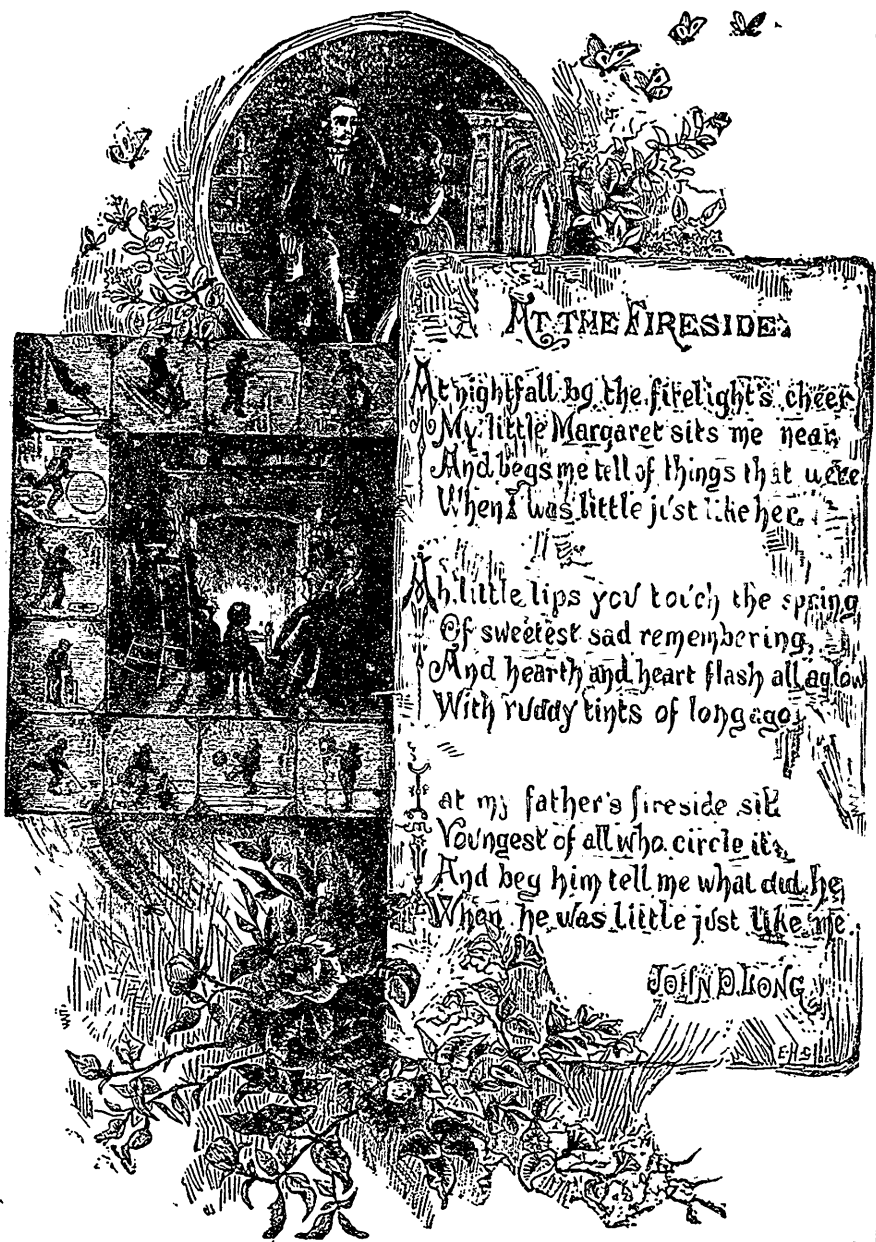 AT THE FIRESIDE.
At nightfall by the firelight's cheer
My little Margaret sits me near,
And begs me tell of things that were
When I was little just like her.
Ah, little lips you touch the spring
Of sweetest sad remembering,
And hearth and heart flash all aglow
With ruddy tints of long ago.
I at my father's fireside sit
Youngest of all who circle it,
And beg him tell me what did he
When he was little just like me.
JOHN D. LONG.